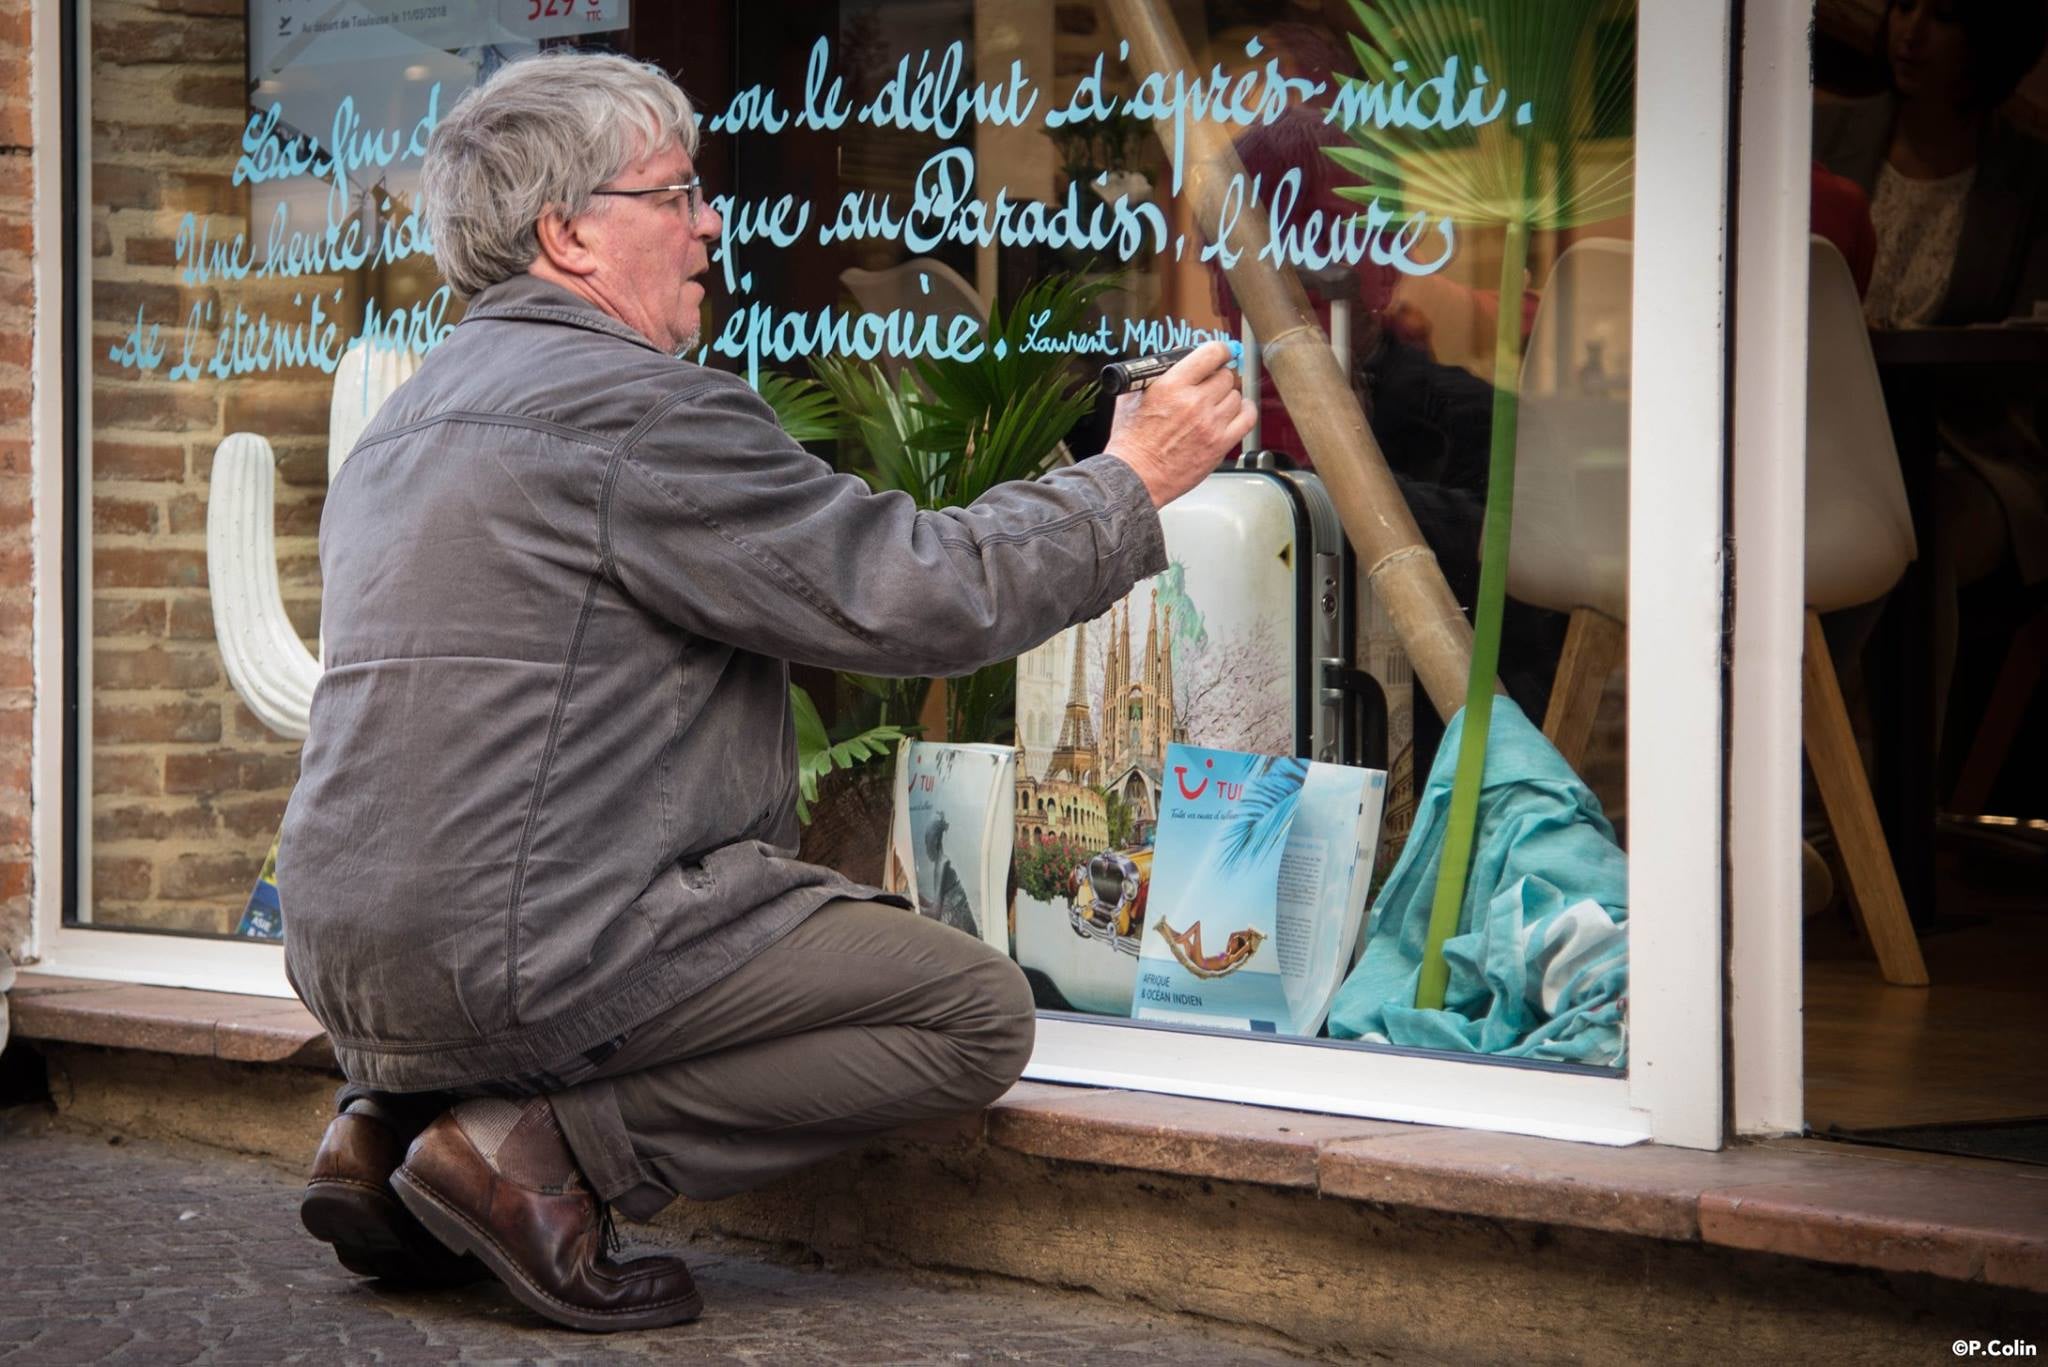 Au départ de Toulouse le 11/05/2018
529 €
TTC
La fin d ou le début d'après-midi.
Une heure idé que au Paradis, l'heure
de l'éternité parle , épanouie. Laurent MAUVIGNI
TUI
TUI
Toutes vos envies d'ailleurs
AFRIQUE
& OCÉAN INDIEN
ASIE
©P.Colin